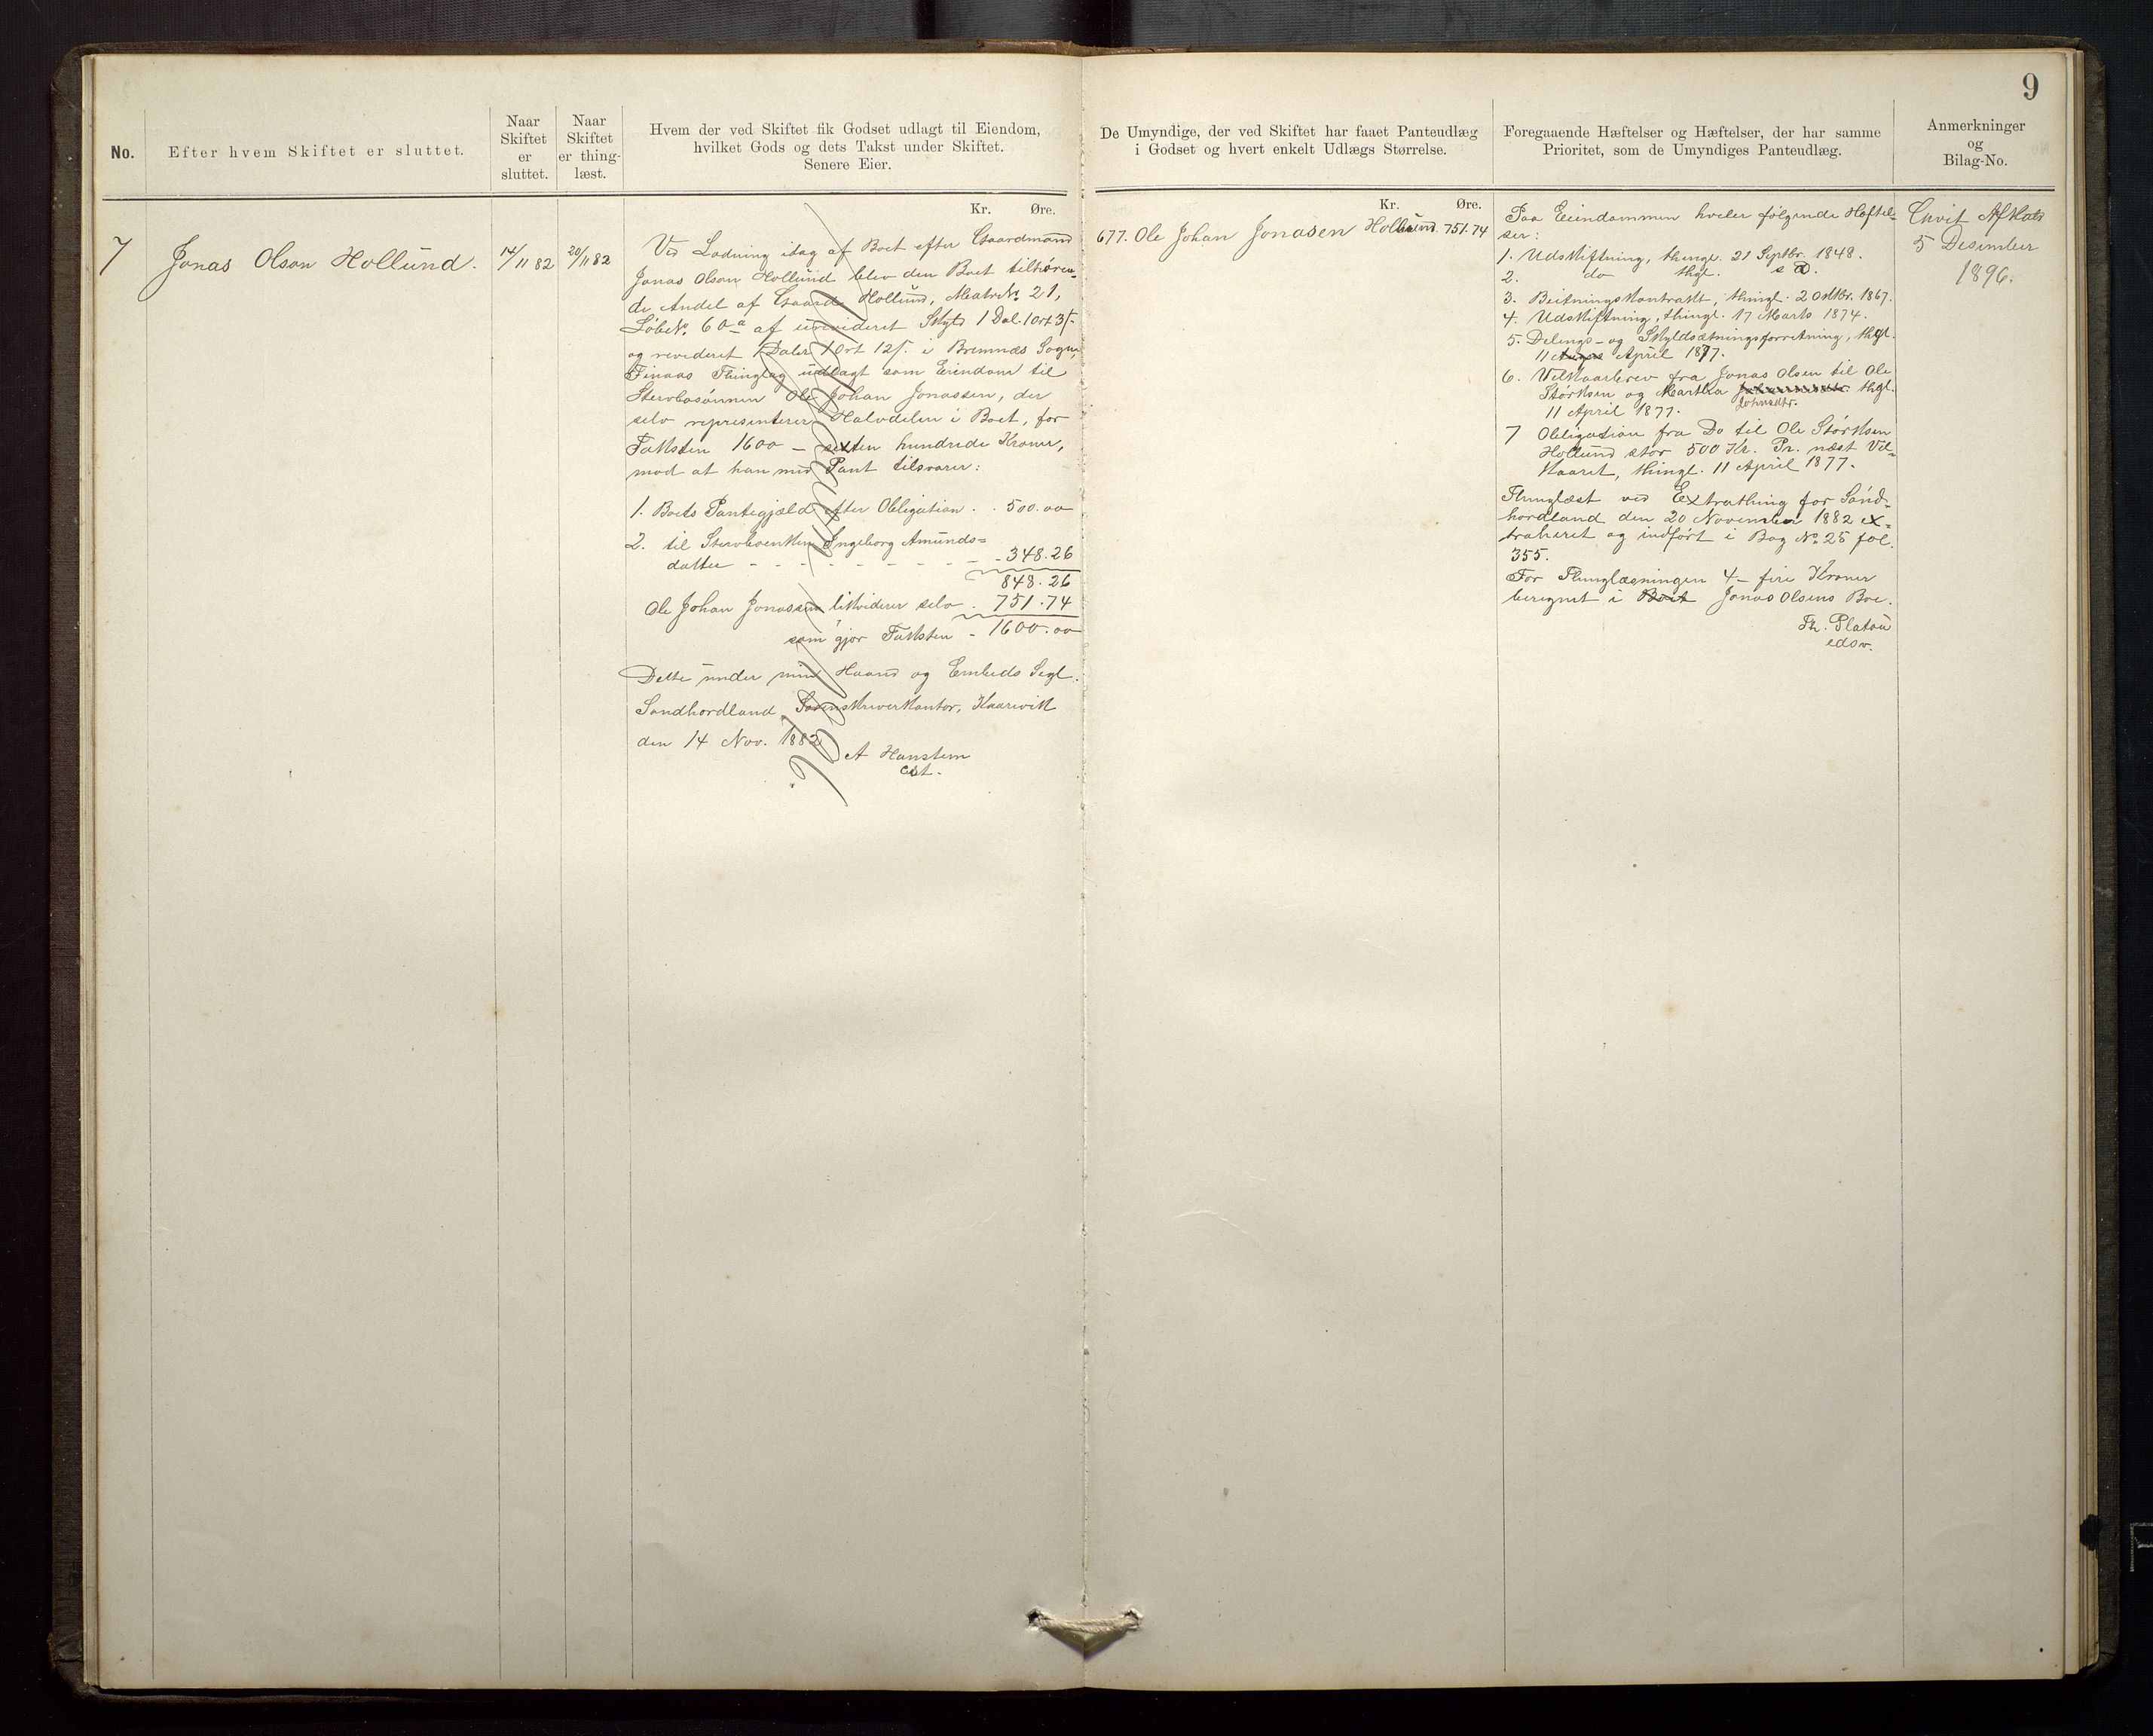 9
No.
Efter hvem Skiftet er sluttet.
Naar
Skiftet
er
sluttet.
Naar
Skiftet
er thing-
læst.
Hvem der ved Skiftet fik Godset udlagt til Eiendom,
hvilket Gods og dets Takst under Skiftet.
Senere Eier.
De Umyndige, der ved Skiftet har faaet Panteudlæg
i Godset og hvert enkelt Udlægs Størrelse.
Foregaaende Hæftelser og Hæftelser, der har samme
Prioritet, som de Umyndiges Panteudlæg.
Anmerkninger
og
Bilag-No.
7
Jonas Olson Hollund.
14/11 82
20/11 82
Kr. Øre.
Ved Lodning idag af Boet efter Gaardmand
Jonas Olson Hollund blev den Boet tilhøren-
de Andel af Gaard Hollund, Matr No. 21,
Løbe No. 60a af urevideret Skyld 1 Dal. 1 Ort 3 ſ.
og revideret 1 Daler 1 Ort 12 ſ. i Bremnæs Sogn,
Finaas Thinglag udlagt som Eiendom til
Stervbosønnen Ole Johan Jonassen, der
selv representerer Halvdelen i Boet, for
Taksten 1600 – sexten hundrede Kroner,
mod at han mod Pant tilsvarer:
1. Boets Pantegjæld efter Obligation . . 500.00
2. til Stervboenken Ingeborg Amunds=
datter - - - - - - - - 348.26
848.26
Ole Johan Jonassen likviderer selv . 751.74
som gjør Taksten - 1600.00
Dette under min Haand og Embeds Segl.
Søndhordland Sorenskriverkontor, Kaarevik
den 14 Nov. 1882
A Hansteen
cst.
Kr. Øre.
677. Ole Johan Jonasen Hollund. 751.74
Paa Eiendommen hviler følgende Hæftel=
ser:
1. Udskiftning, thingl. 21 Septbr. 1848.
2. do thgl. s D.
3. Beitningskontrakt, thingl. 2 Oktbr. 1867.
4. Udskiftning, thingl. 17 Marts 1874.
5. Delings- og Skyldsætningsforretning, thgl.
11 April 1877.
6. Vilkaarbrev fra Jonas Olsen til Ole
Størksen og Martha thgl.
Johnsdtr.
11 April 1877.
7 Obligation fra Do til Ole Størksen
Hollund stor 500 Kr. Pr. næst Vil=
kaaret, thingl. 11 April 1877.
Thinglæst ved Extrathing for Sønd-
hordland den 20 November 1882 ex=
traheret og indført i Bog No. 25 fol.
355.
For Thinglæsningen 4 – fire Kroner
beregnet i Boet Jonas Olsens Boe.
Th. Platou
edsv.
Qvit Afkald
5 Desember
1896.